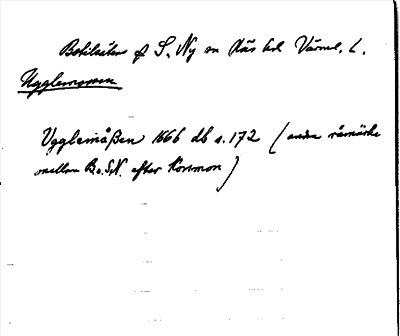 Botilsäter o S. Ny sn Näs hd Värml. l.
Ugglemossen
Ugglemåßen 1666 db s. 172 (andra råmärke
mellan B. o. S.N. efter Kommon)